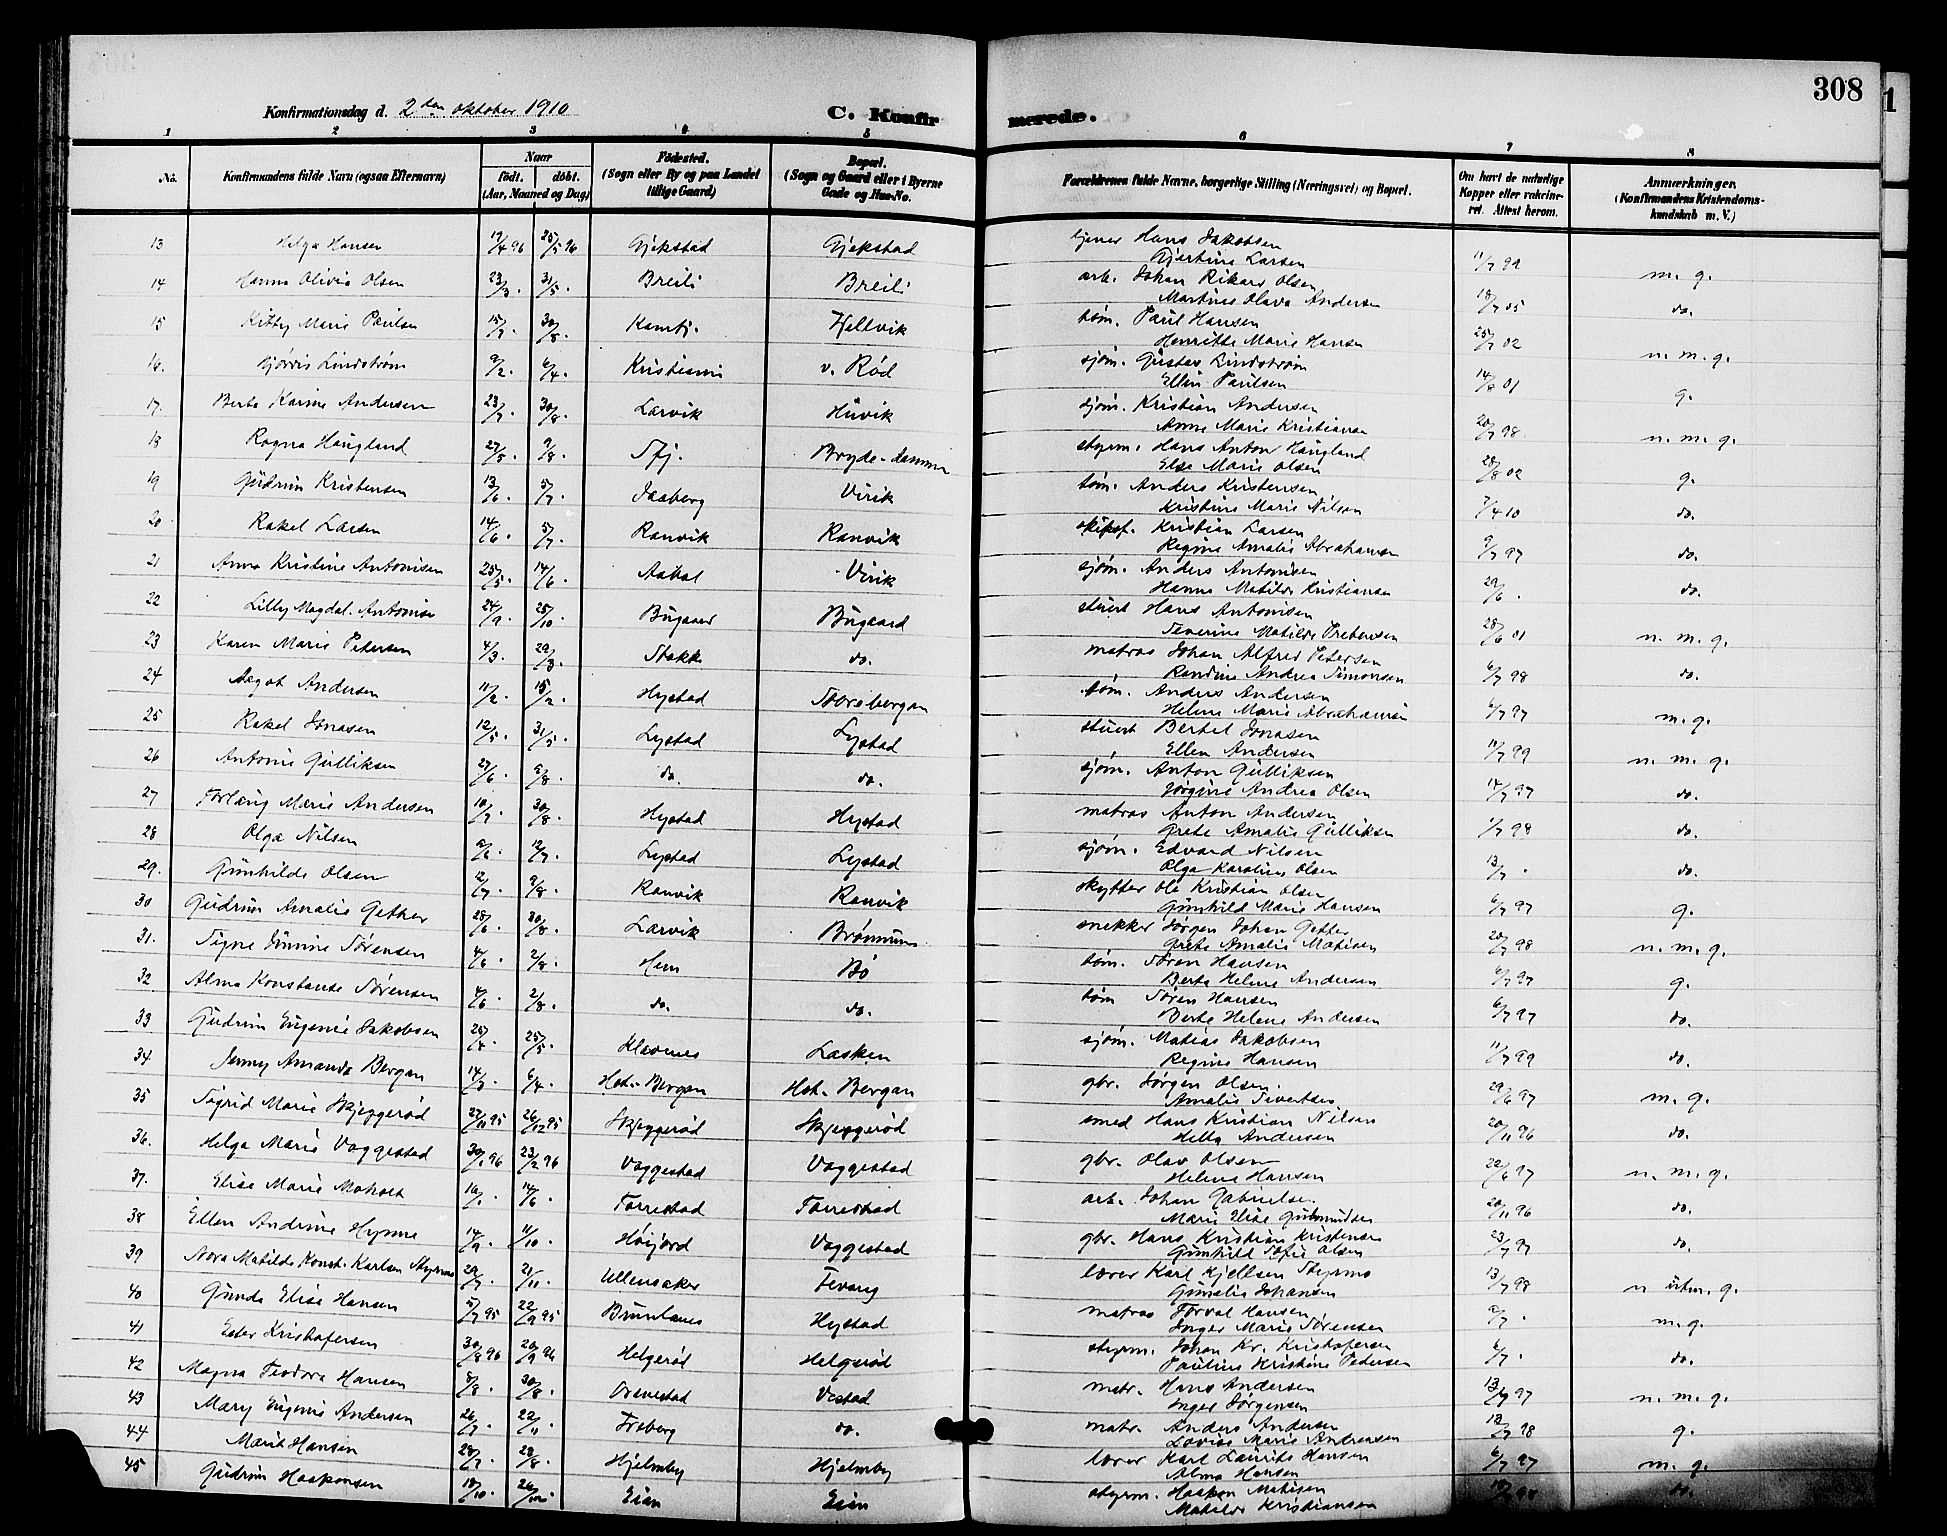 308
Konfirmationsdag d. 2den oktober 1910
C. Konfirmerede.
1 2 3 4 5 6 7 8
No. Konfirmandens fulde Navn (ogsaa Efternavn) Naar født. døbt. (Aar, Maaned og Dag) Fødested. (Sogn eller By og paa Landet tillige Gaard) Bopæl. (Sogn og Gaard eller i Byerne Gade og Hus-No. Forældrenes fulde Navne, borgerlige Stilling (Næringsvei) og Bopæl. Om havt de naturlige Kopper eller vakcineret. Attest herom. Anmærkninger. (Konfirmandens Kristendomskundskab m. V.)
13 Helga Hansen 19/4 96 25/5 96 Gjekstad Gjekstad Hans Jakobsen
Gjertine Larsen 11/7 99 m. g.
14 Hanna Olivia Olsen 23/3. 31/5. Breili Breili arb. Johan Rikard Olsen
Martine Olava Andersen 18/7 05 do.
15 Kitty Marie Paulsen 15/7. 30/8. Hellvik tøm. Paul Hansen
Henriette Marie Hansen 25/7 02 n. m. g.
16. Lindstrøm 9/2. 6/4. Kristiania v. Rød sjøm. Gustav Lindstrøm
Ellen Paulsen 14/8 01 g.
17. Berta Karine Andersen 23/7. 30/8. Larvik Huvik sjøm. Kristian Andersen
Anne Marie Kristiansen 20/7 98 n. m. g.
18 Ragna Haugland 27/5. 9/8. Sfj. Bryde-dammen styrm. Hans Anton Haugland
Else Marie Olsen 28/8 02 g.
19 Gudrun Kristensen 13/6. 5/7. Jaaberg Virik tøm. Anders Kristensen
Kristine Marie Nilsen 7/4 10 do.
20 Rakel Larsen 14/6. 5/7. Ranvik Ranvik skibsf. Kristian Larsen
Regine Amalie Abrahamsen 9/7 97 do.
21 Anna Kristine Antonisen 25/5. 14/6. Virik sjøm. Anders Antonisen
Hanna Matilde Kristiansen 29/6. do.
22 Lilly Magdal. Antonise 24/9. 25/10. Bugaard Bugaard stuert Hans Antonisen
Severine Matilde Prebensen 28/6 01 n. m. g.
23 Karen Marie Petersen 4/3. 29/3. Stokke do. matros Johan Alfred Petersen
Randine Andrea Simonsen 6/7 98 do.
24 Aagot Andersen 11/2. 15/2. Hystad Storebergan tøm. Anders Andersen
Helene Marie Abrahamsen 6/7 97 m. g.
25 Rakel Jonasen 12/5. 31/5. Lystad Lystad stuert Bertel Jonasen
Ellen Andersen 11/7 99 n. m. g.
26 Antonie Gulliksen 27/6. 9/8. do. do. sjøm. Anton Gulliksen
Jørgine Andrea Olsen 14/7 97 do.
27 Torlaug Marie Andersen 10/7. 30/8. Hystad Hystad matros Anton Andersen
Grete Amalie Gulliksen 1/7 98 do.
28 Olga Nilsen 9/6. 12/7. Lystad Lystad sjøm. Edvard Nilsen
Olga Karoline Olsen 13/7. do.
29. Gunhilde Olsen 12/7. 9/8. Ranvik Ranvik skytter Ole Kristian Olsen
Gunhild Marie Hansen 6/7 97 g.
30 Gudrun Amalie Gether 28/6. 30/8. Larvik Brønnum snekker Jørgen Johan Gether
Grete Amalie Matisen 20/7 98 n. m. g.
31. Signe Sørensen 4/6. 2/8. Hem Bø tøm. Søren Hansen
Berta Helene Andersen 6/7 97 g.
32 Alma Konstanse Sørensen 4/6. 2/8. do. do. tøm Søren Hansen
Berte Helene Andersen 6/7 97 do.
33 Gudrun Eugenie Jakobsen 28/4. 25/5. Klavenes Lasken sjøm. Matias Jakobsen
Regine Hansen 11/7 99 do.
34 Jenny Amanda Bergan 14/3. 6/4. Hst. Bergan Hst. Bergan gbr. Jørgen Olsen.
Amalie Sivertsen 29/6 97 m. g.
35 Sigrid Marie Skjeggerød 27/11 95 26/12 95 Skjeggerød Skjeggerød smed Hans Kristian Nilsen
Helle Andersen 20/11 96 do.
36. Helga Marie Vaggestad 30/1 96 23/2 96 Vaggestad Vaggestad gbr. Olav Olsen
Helene Hansen 22/6 97 n. m. g.
37. Elise Marie Moholt 14/6 Torrestad Torrestad arb. Johan Gabrielse.
Marie Elise Gudmundsen 20/11 96 do.
38 Ellen Andrine Hynne 14/9. 11/10. Høijord Vaggestad gbr. Hans Kristian Kristensen
Gunhild Sofie Olsen 23/7 97 do.
39 Nora Matilde Konst. Karlsen Styrmo 29/7. 21/11. Ullensaker Fevang lærer Karl Kjellsen Styrmo
Gunalie Johansen 13/7 98 n utm. g.
40 Gunda Elise Hansen 5/7 95 22/9 95 Brunlanes Hystad matros Torval Hansen
Inger Marie Sørensen 9/7. m. g.
41 Ester Kristofersen 30/8 96 20/9 96 Helgerød Helgerød styrm. Johan Kr. Kristofersen
Pauline Kristine Pedersen 6/7. do.
42 Magna Teodora Hansen 8/8. 30/8. Orenestad Vestad matr. Hans Andersen
Inger Jørgensen 13/7 97 n. m. g.
43 Mary Eugenie Andersen 26/7. 22/11. Freberg do. matr. Anders Andersen
Lovise Marie Andreasen 12/7 98 g.
44 Marit Hansen 28/7. 28/8. Hjelmby Hjelmby lærer Karl Laurits Hansen
Alma Hansen 6/7 97 m. g.
45 Gudrun Haakonsen 18/10. Eian Eian styrm. Haakon Matisen
Matilde Kristiansen do.